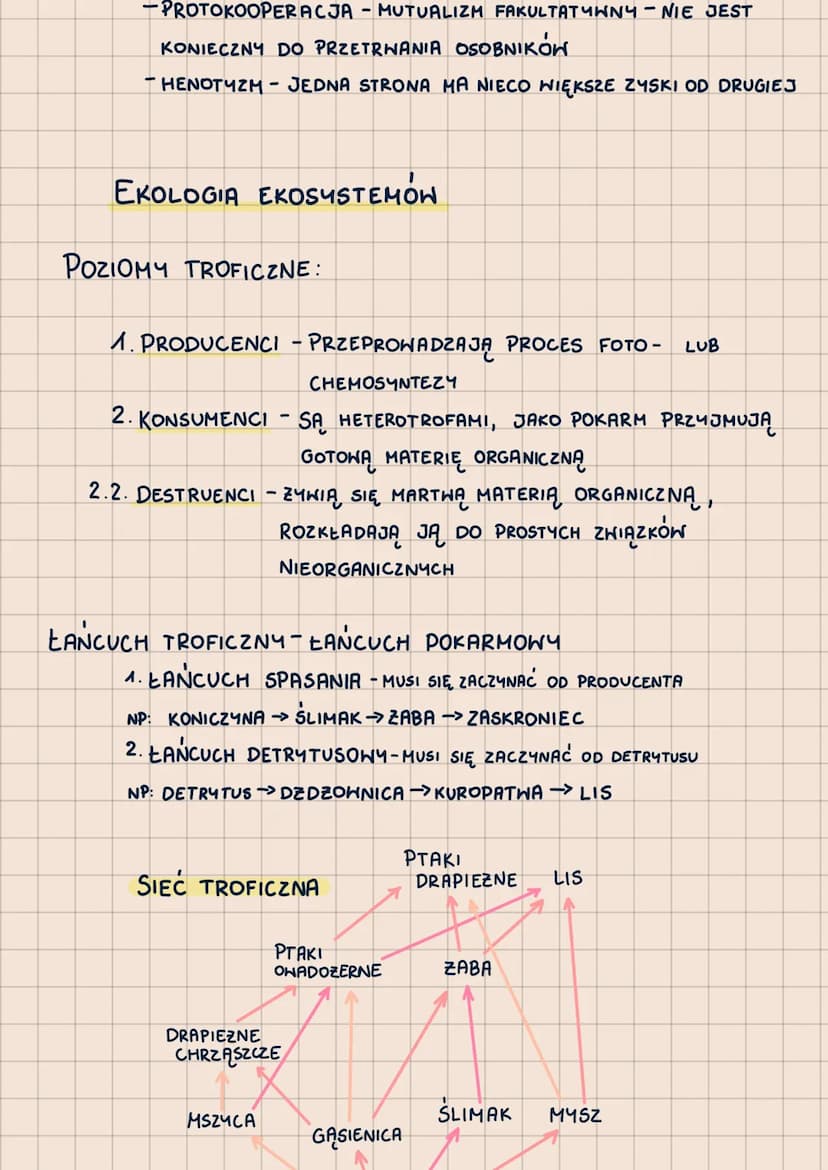 - PROTOKOOPERACJA - MUTUALIZM FAKULTATYWNY - NIE JEST
KONIECZNY DO PRZETRWANIA OSOBNIKÓW
- HENOTYZM - JEDNA STRONA MA NIECO WIĘKSZE ZYSKI OD DRUGIEJ
EKOLOGIA EKOSYSTEMÓW
POZIOMY TROFICZNE:
1. PRODUCENCI - PRZEPROWADZAJĄ PROCES FOTO- LUB
CHEMOSYNTEZY
2. KONSUMENCI - SĄ HETEROTROFAMI, JAKO POKARM PRZYJMUJĄ
GOTOWĄ MATERIĘ ORGANICZNĄ
2.2. DESTRUENCI - ŻYWIĄ SIĘ MARTWĄ MATERIĄ ORGANICZNĄ,
ROZKŁADAJĄ JĄ DO PROSTYCH ZWIĄZKÓW
NIEORGANICZNYCH
ŁAŃCUCH TROFICZNY - ŁAŃCUCH POKARMOWY
1. ŁAŃCUCH SPASANIA - MUSI SIĘ ZACZYNAĆ OD PRODUCENTA
NP: KONICZYNA → ŚLIMAK → ŻABA → ZASKRONIEC
2. ŁAŃCUCH DETRYTUSOWY - MUSI SIĘ ZACZYNAĆ OD DETRYTUSU
NP: DETRYTUS → DŻDŻOWNICA → KUROPATWA → LIS
SIEĆ TROFICZNA
PTAKI
DRAPIEŻNE
LIS
PTAKI
OWADOŻERNE
ŻABA
DRAPIEŻNE
CHRZĄSZCZE
MSZYCA
GĄSIENICA
ŚLIMAK
MYSZ